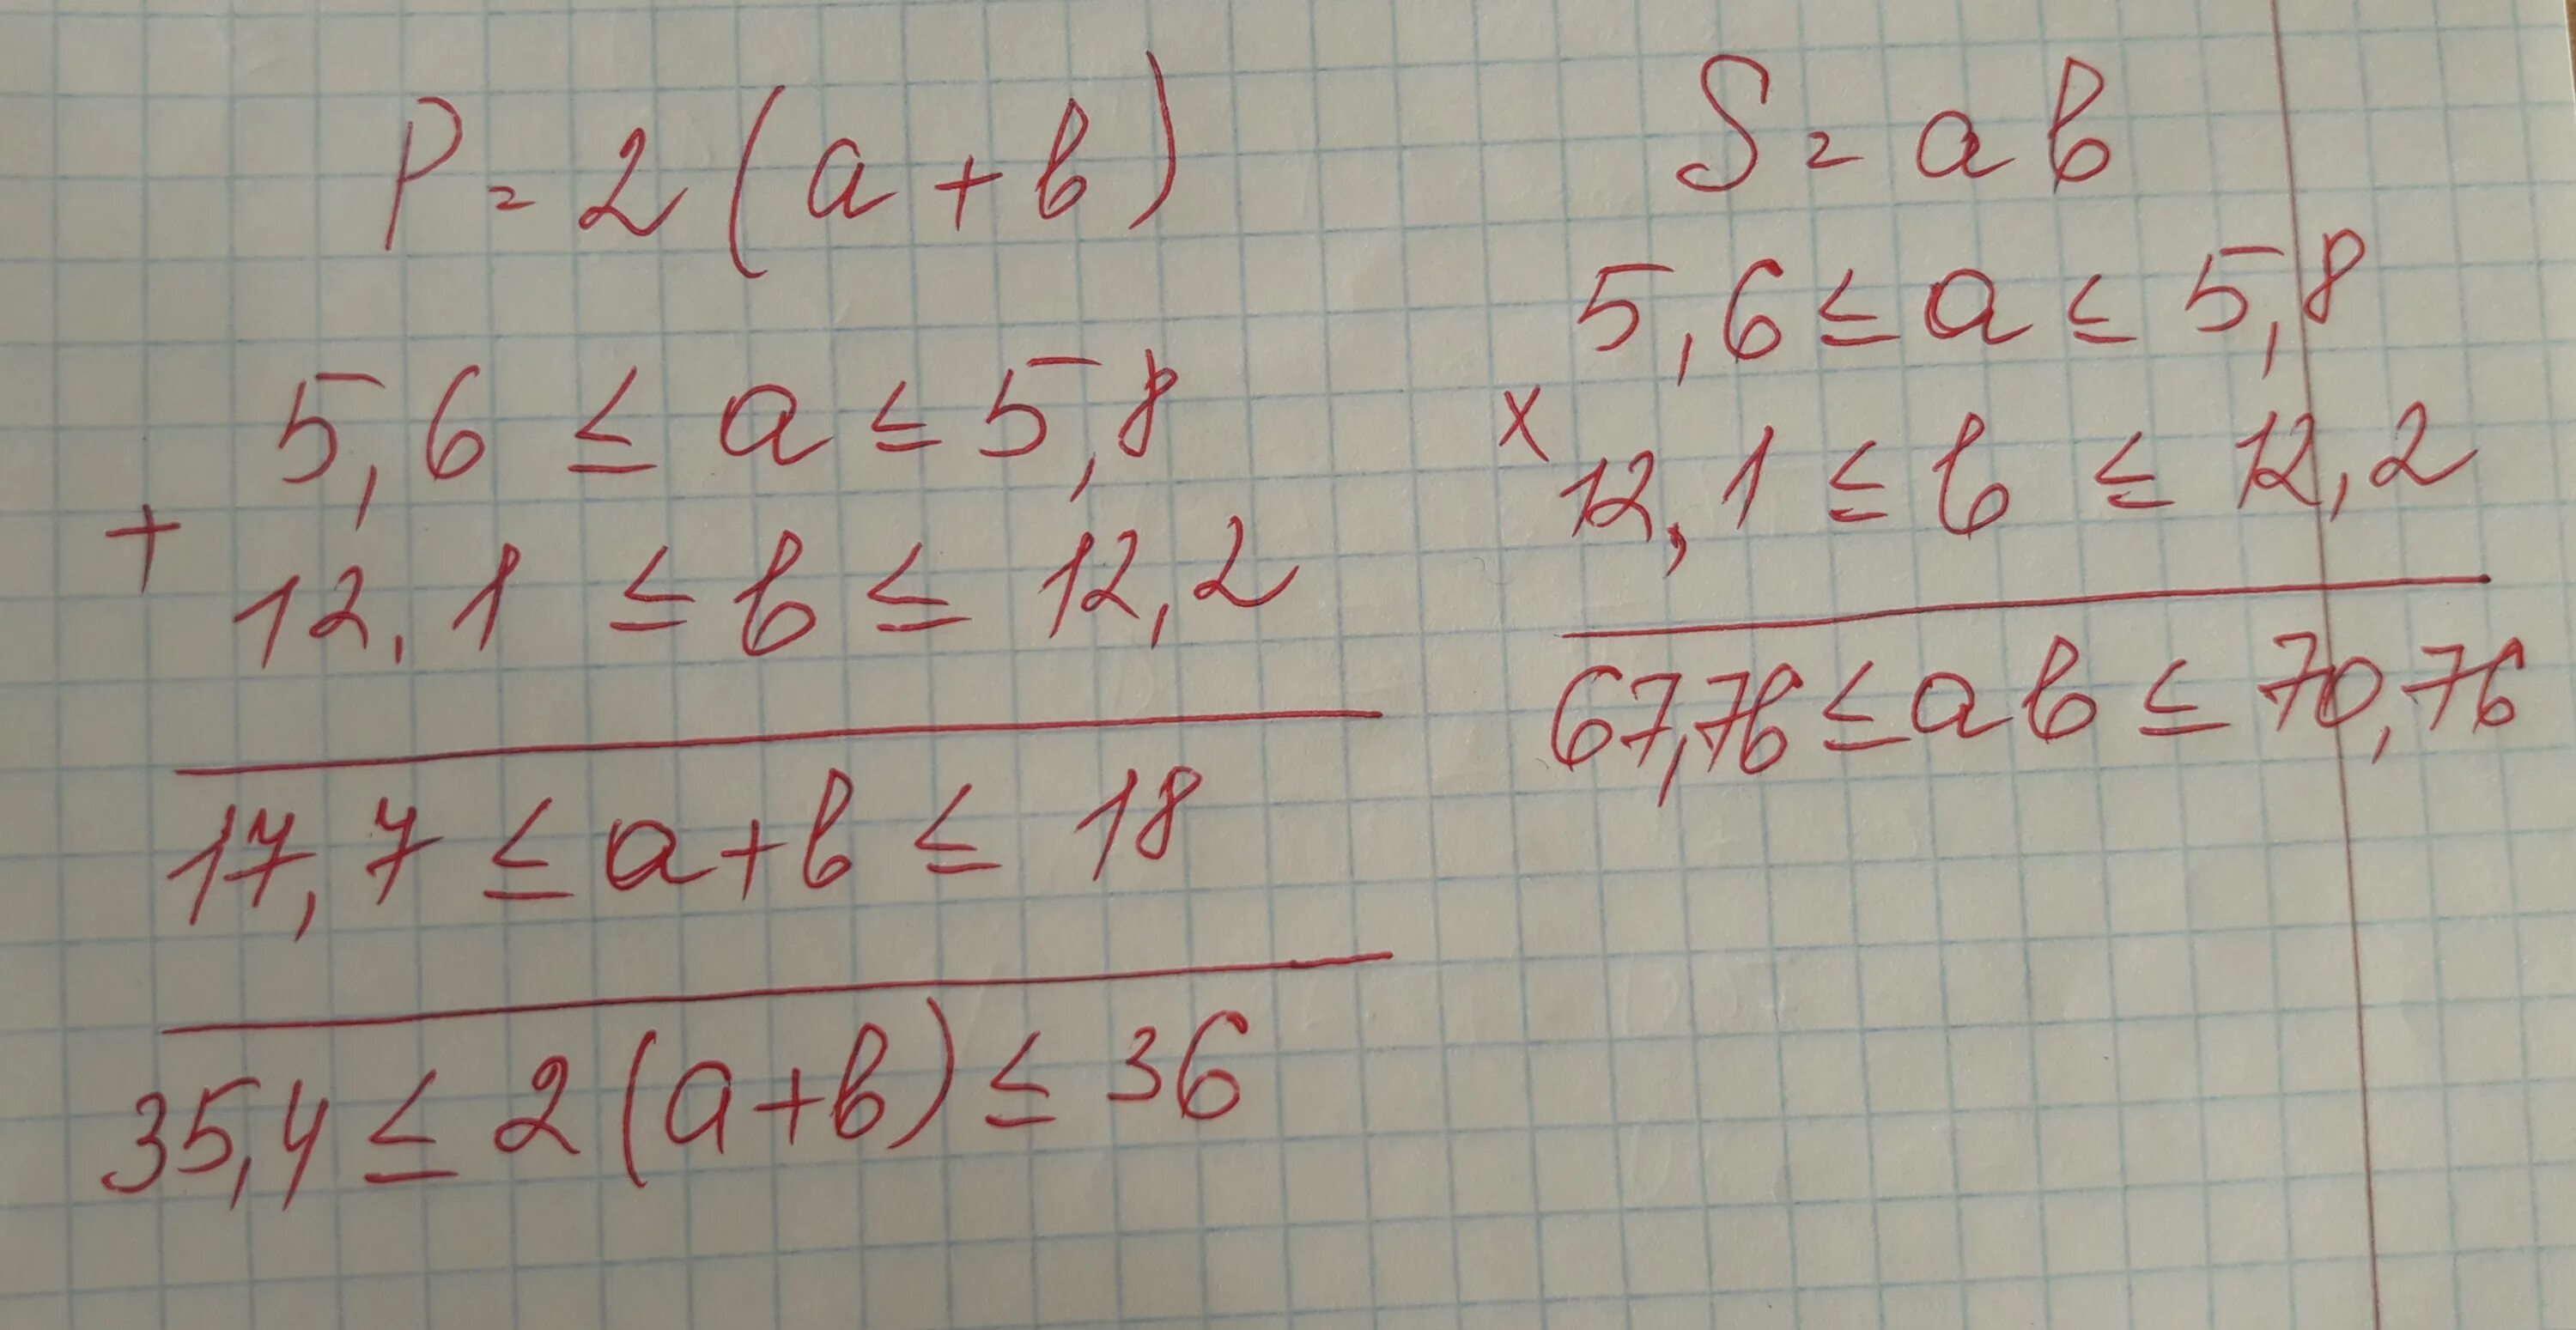 P = 2 (a + b)
5,6 ≤ a ≤ 5,8
+
12,1 ≤ b ≤ 12,2
17,7 ≤ a + b ≤ 18
35,4 ≤ 2 (a + b) ≤ 36
S = a b
5,6 ≤ a ≤ 5,8
x
12,1 ≤ b ≤ 12,2
67,76 ≤ a b ≤ 70,76